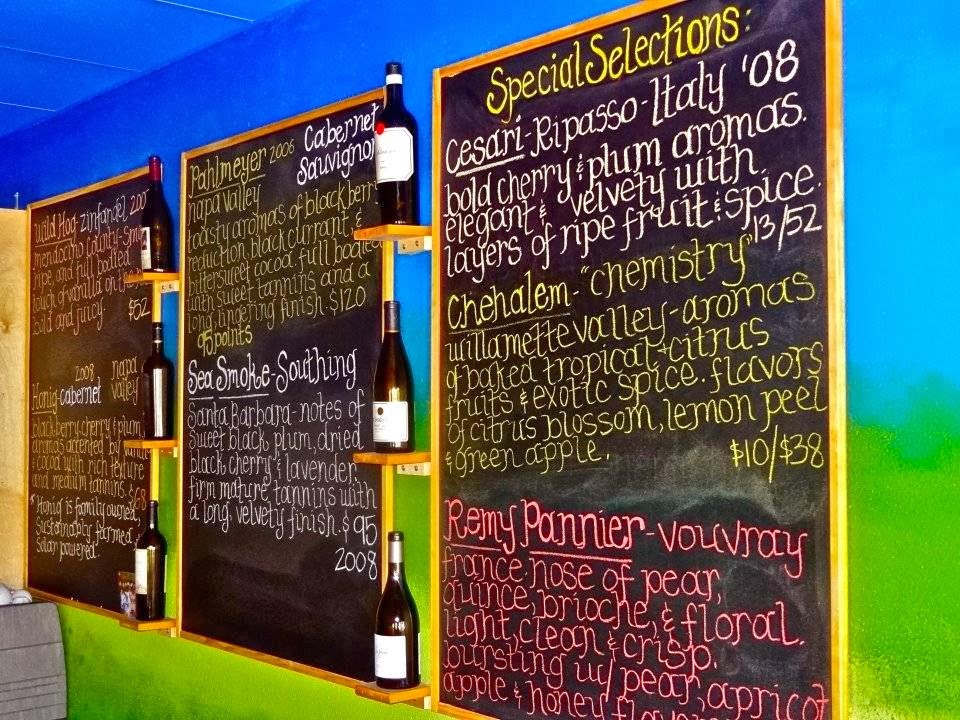 Wild Hog Zinfandel 200
mendocino County-Smo
ripe and full bodied
touch of vanilla on t
bold and juicy. $52
2008 napa
Honig-Cabernet valley
Blackberry, cherry, plum
aromas accented by vani
& cocoa with rich texture
and medium tannins. $68
*Honig is family owned,
Sustainably farmed &
Solar powered.
Pahlmeyer 2006 Cabernet
Sauvignon
napa valley
toasty aromas of blackberry
reduction, black currant, &
bittersweet cocoa. full bodied
with sweet tannins and a
long, lingering finish. $120
95 points
Sea Smoke-Southing
Santa Barbara-notes of
sweet black, plum, dried
black cherry & lavender,
firm mature tannins with
a long, velvety finish. $95
2008
Special Selections:
Cesari-Ripasso-Italy '08
bold cherry & plum aromas.
elegant & velvety with
layers of ripe fruit & spice.
13/52
Chehalem-"chemistry"
willamette valley-aromas
of baked tropical+citrus
fruits & exotic spice. flavors
of citrus blossom, lemon peel
& green apple. $10/$38
Remy Pannier-vouvray
france. nose of pear,
quince, brioche, & floral.
light, clean & crisp.
bursting w/ pear, apricot
apple & honey flavor